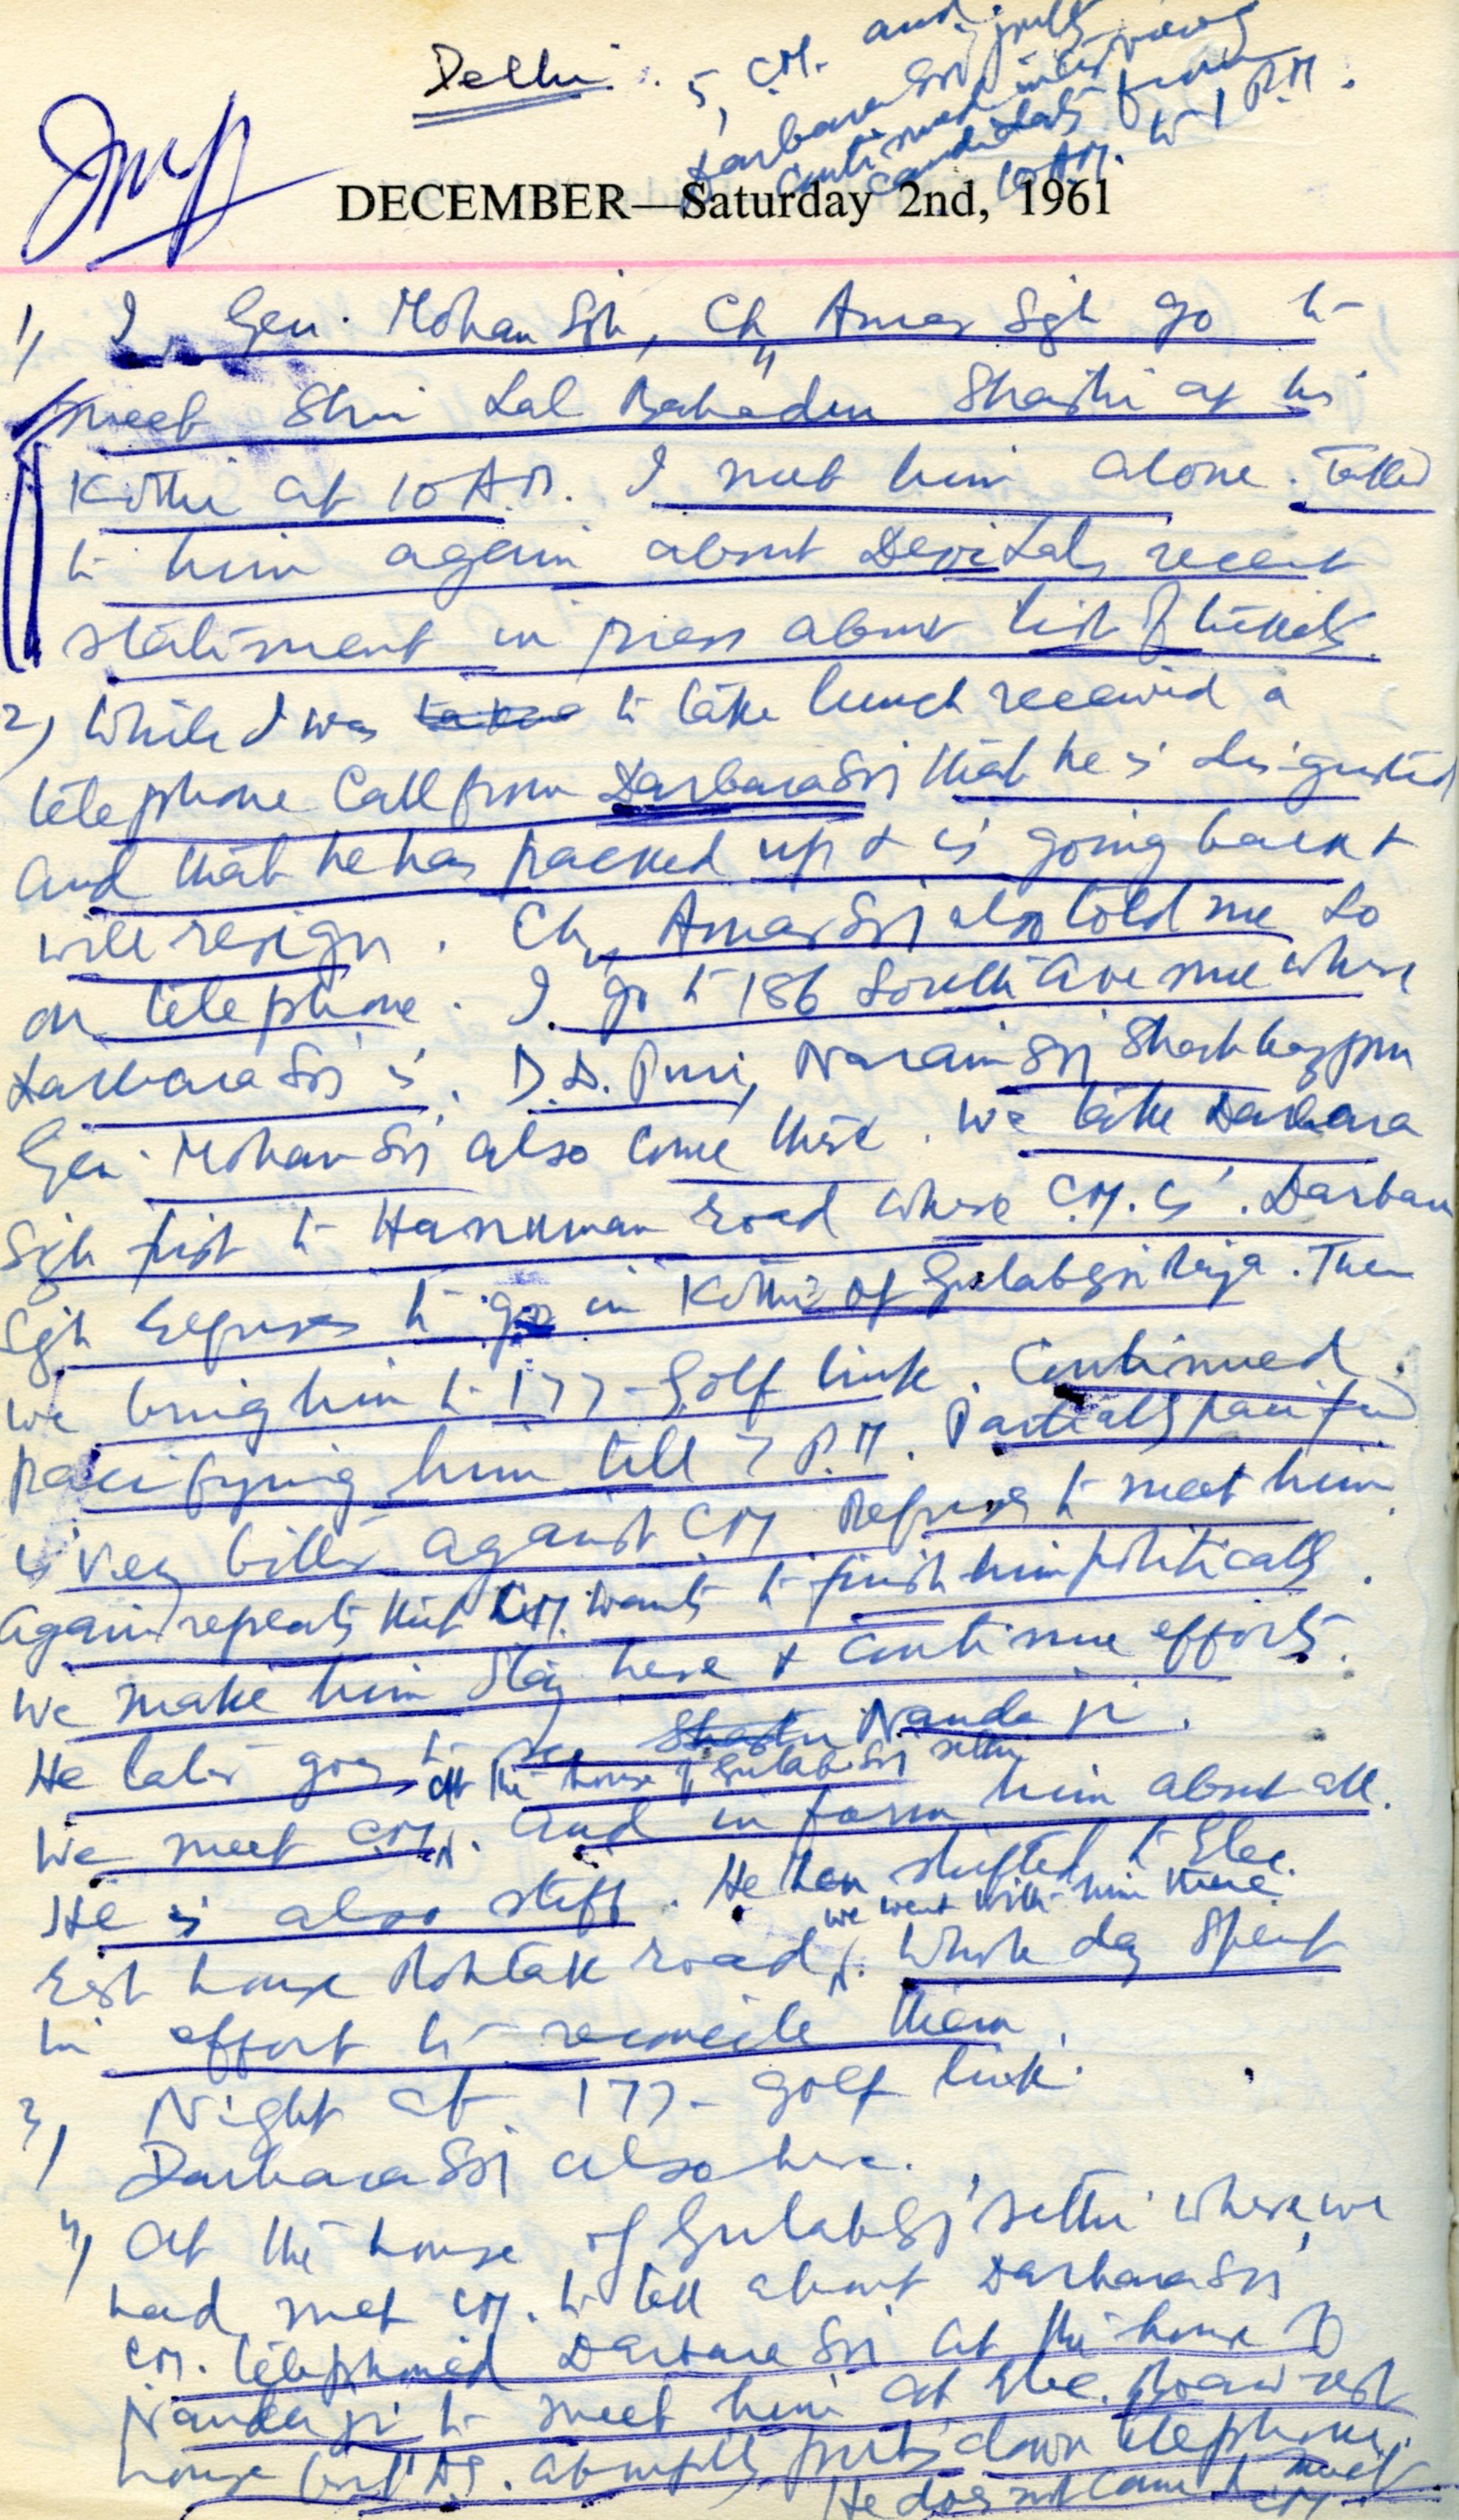 Delhi
5, C.M. and
Darbara Sgh jointly
continued interviewing
candidates from
10 A.M. to 1 P.M.
DECEMBER—Saturday 2nd, 1961
1) I, Gen. Mohan Sgh, Ch. Amar Sgh go to
meet Shri Lal Bahadur Shastri at his
Kothi at 10 A.M. I meet him alone. Talked
to him again about Devi Lal's recent
statement in press about list of tickets.
2) While I was to take lunch received a
telephone call from Darbara Sgh that he is disgusted
and that he has packed up & is going back &
will resign. Ch. Amar Sgh also told me so
on telephone. I go to 186 South Avenue where
Darbara Sgh is. D.D. Puri, Narain Sgh Shahbazpuri
Gen. Mohan Sgh also come there. We take Darbara
Sgh first to Hanuman road where C.M. is. Darbara
Sgh refuses to go in Kothi of Gulab Sgh. Then
we bring him to 177-Golf link. Continued
pacifying him till 7 P.M. Partially pacified
is very bitter against CM Refuses to meet him.
Again repeats that C.M. wants to finish him politically.
We make him stay here & continue efforts.
He later goes to see Shastri Nanda ji.
at the house of Gulab Sgh Sethi
We meet C.M. and inform him about all.
He is also stiff. He then shifted to Elec.
we went with him there.
rest house Rohtak road. Whole day spent
in effort to reconcile them.
3) Night at 177- Golf link.
Darbara Sgh also here.
4) At the house of Gulab Sgh Sethi where we
had met CM. to tell about Darbara Sgh
CM. telephoned Darbara Sgh at the house of
Nanda ji to meet him at Elec. Board rest
house but D.S. abruptly puts down telephone.
He does not come to meet
CM.